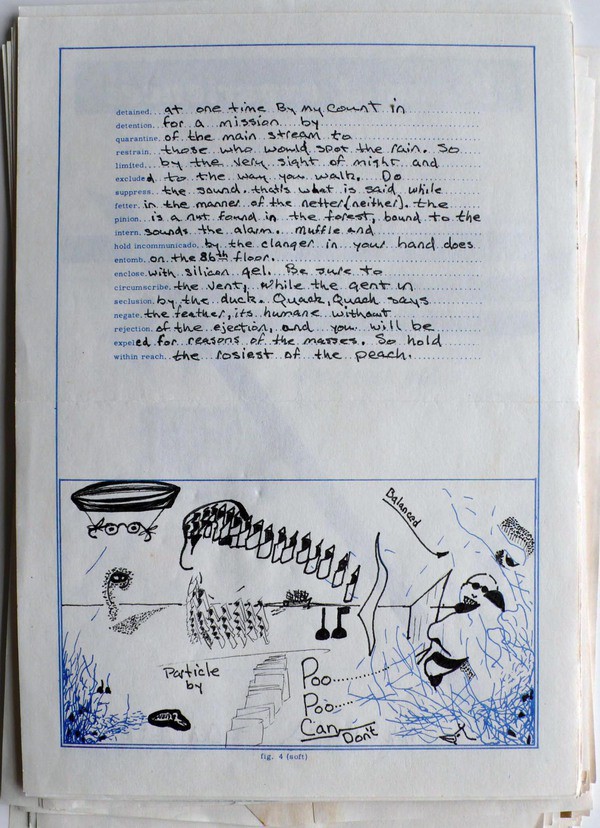 detained... at one time By my count in
detention. for a mission by
quarantine. of the main stream to
restrain... those who would spot the rain. So
limited... by the very sight of might and
excluded to the way you walk. Do
suppress. the sound. that's what is said, while
fetter. in the manner of the netter(neither). the
pinion... is a nut found in the forest, bound to the
intern. sounds the alarm. Muffle and
hold incommunicado. by the clanger in your hand does
entomb. on the 86th floor.
enclose. with silicon gel. Be sure to
circumscribe. the vent, while the gent in
seclusion. by the duck. Quack, Quack says
negate. the feather, its humane without
rejection. of the ejection, and you will be
expeled for reasons of the masses. So hold
within reach. the rosiest of the peach.
Balanced
Particle
by
Poo
Poo
Can
Don't
fig. 4 (soft)